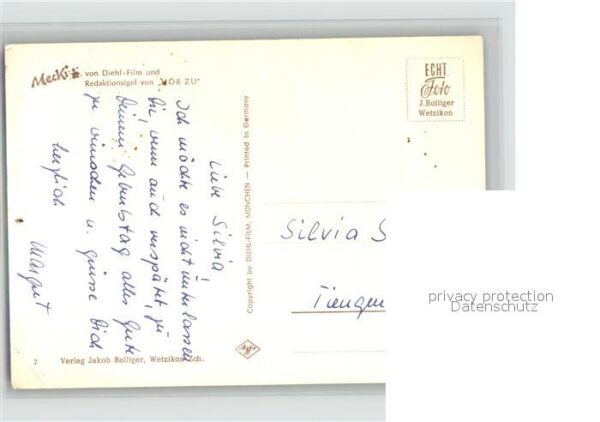 Mecki von Diehl-Film und
Redaktionsigel von "HÖR ZU"
ECHT
Foto
J. Bolliger
Wetzikon
Liebe Silvia,
Ich möchte es nicht unterlassen
Dir, wenn auch verspätet, zu
Deinem Geburtstag alles Gute
zu wünschen u. grüsse Dich
herzlich
Margret
Copyright by DIEHL-FILM, MÜNCHEN — Printed in Germany
Silvia S
Tiengen
privacy protection
Datenschutz
2 Verlag Jakob Bolliger, Wetzikon Zch.